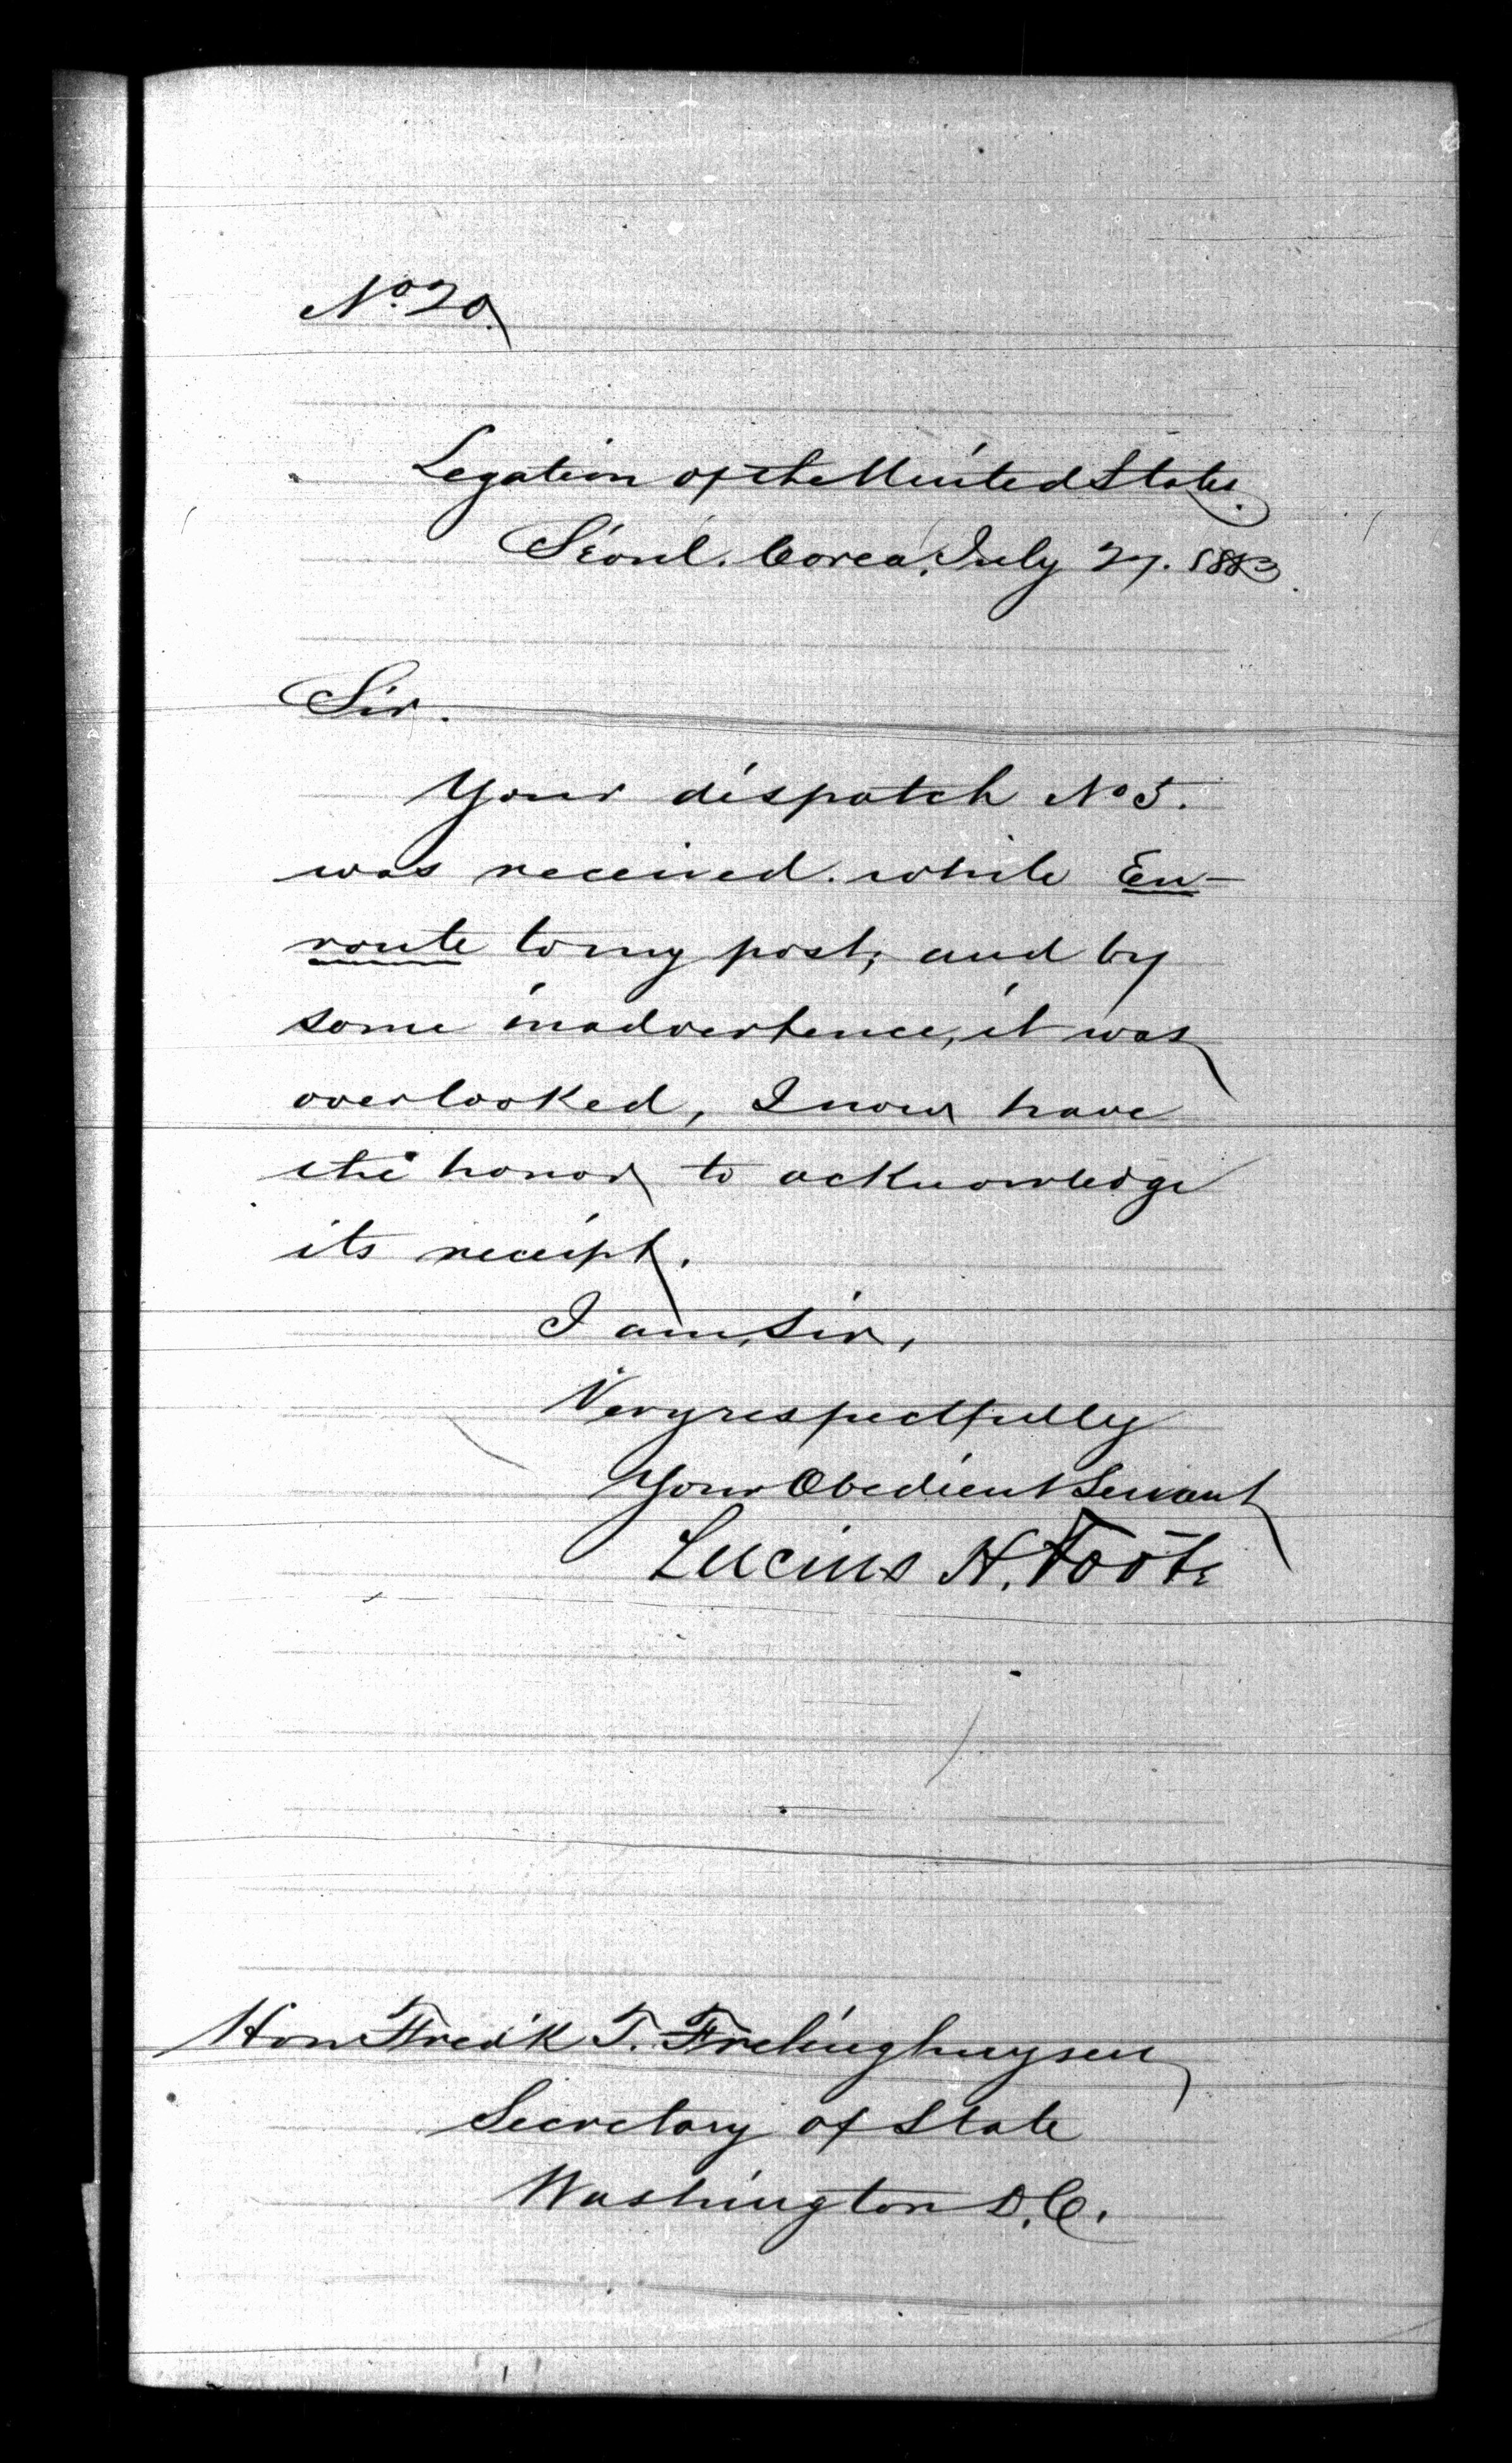 No. 20.
Legation of the United States.
Séoul. Corea. July 27. 1883.
Sir.
Your dispatch No 5.
was received. while En-
route to my post; and by
some inadvertence, it was
overlooked, I now have
the honor to acknowledge
its receipt.
I am, Sir,
Very respectfully
Your Obedient Servant
Lucius H. Foote
Hon Fred'k T. Frelinghuysen
Secretary of State
Washington D.C.